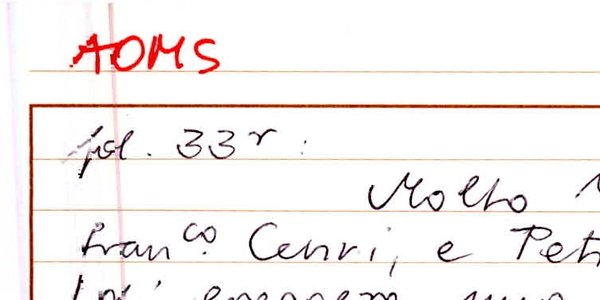 AOMS
fol. 33r:
Molto
Fran.co Cenri, e Pet